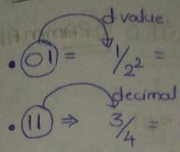 d value
.01 = 1/2² =
decimal
.11 ⇒ 3/4 =